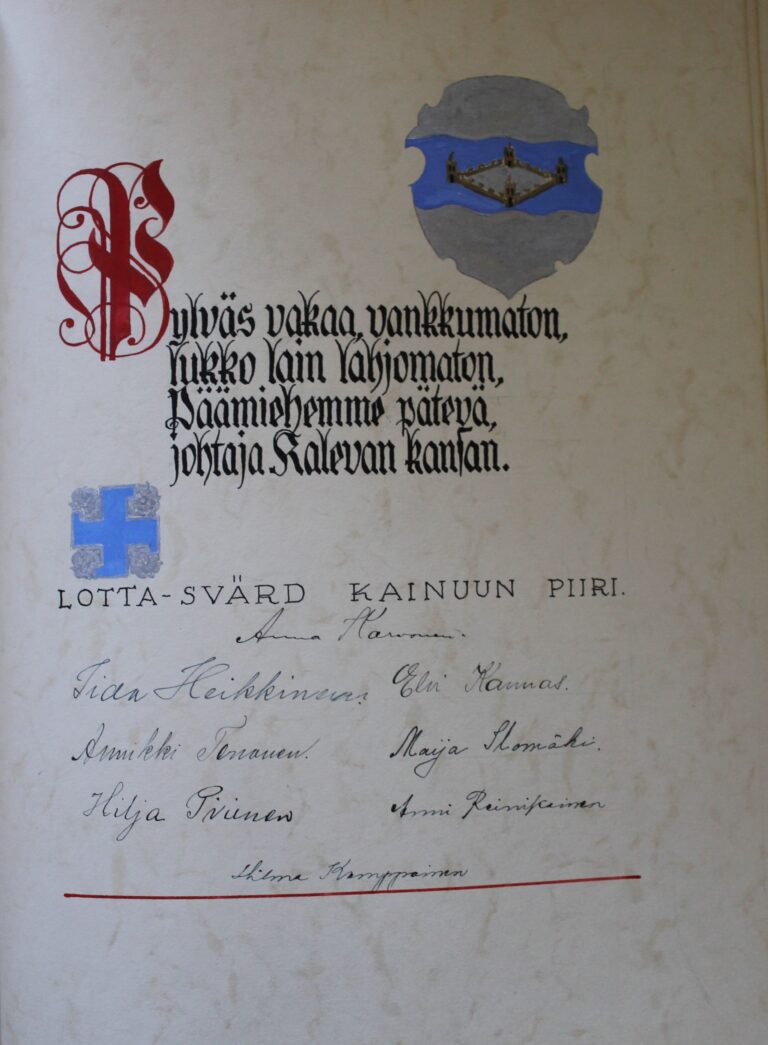 Pylväs vakaa, vankkumaton,
lukko lain lahjomaton,
Päämiehemme pätevä,
johtaja Kalevan kansan.
LOTTA-SVÄRD KAINUUN PIIRI.
Anna Karvonen.
Iida Heikkinen. Elvi Kannas.
Annikki Tenonen. Maija Ilomäki.
Hilja Anni Reinikainen
Hilma Kamppainen